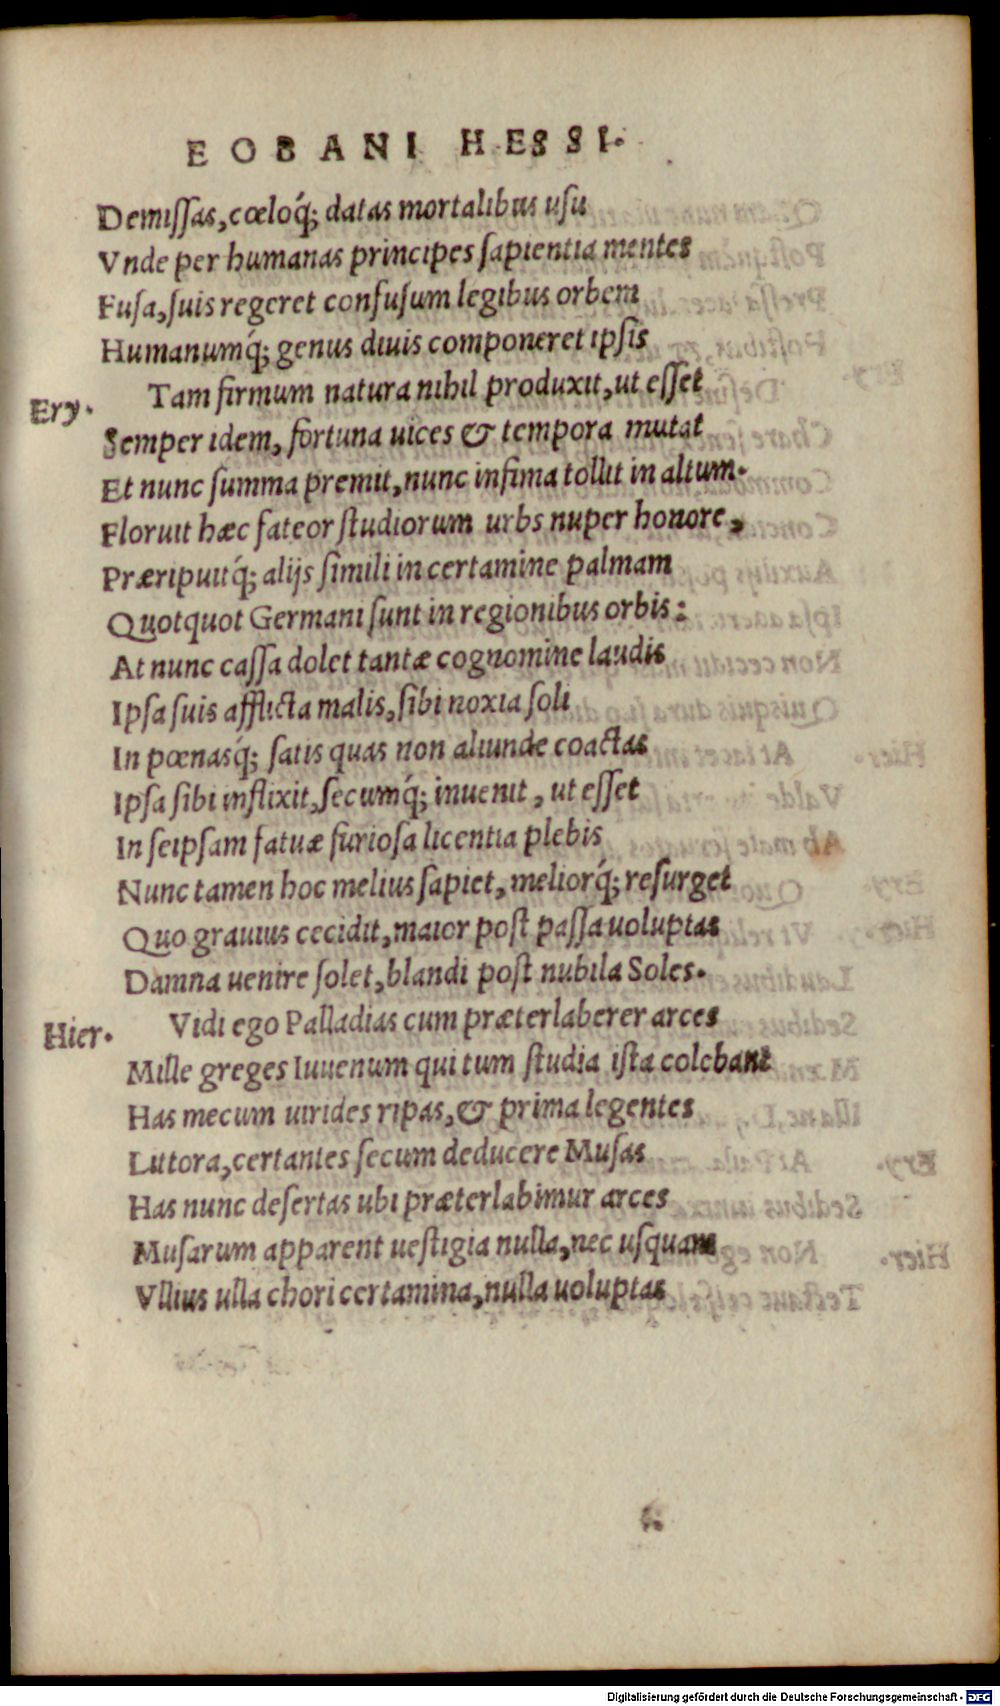 EOBANI HESSI.
Demiſſas, cœloq́; datas mortalibus uſu
Vnde per humanas principes ſapientia mentes
Fuſa, ſuis regeret confuſum legibus orbem
Humanumq́; genus diuis componeret ipſis
Ery. Tam firmum natura nihil produxit, ut eſſet
Semper idem, fortuna uices & tempora mutat
Et nunc ſumma premit, nunc infima tollit in altum.
Floruit hæc fateor ſtudiorum urbs nuper honore,
Præripuitq́; alijs ſimili in certamine palmam
Quotquot Germani ſunt in regionibus orbis:
At nunc caſſa dolet tantæ cognomine laudis
Ipſa ſuis afflicta malis, ſibi noxia ſoli
In pœnasq́; ſatis quas non aliunde coactas
Ipſa ſibi inflixit, ſecumq́; inuenit, ut eſſet
In ſeipſam fatuæ furioſa licentia plebis
Nunc tamen hoc melius ſapiet, meliorq́; reſurget
Quo grauius cecidit, maior poſt paſſa uoluptas
Damna uenire ſolet, blandi poſt nubila Soles.
Hier. Vidi ego Palladias cum præterlaberer arces
Mille greges Iuuenum qui tum ſtudia iſta colebant
Has mecum uirides ripas, & prima legentes
Littora, certantes ſecum deducere Muſas
Has nunc deſertas ubi præterlabimur arces
Muſarum apparent ueſtigia nulla, nec uſquam
Vllius ulla chori certamina, nulla uoluptas
Digitalisierung gefördert durch die Deutsche Forschungsgemeinschaft - DFG